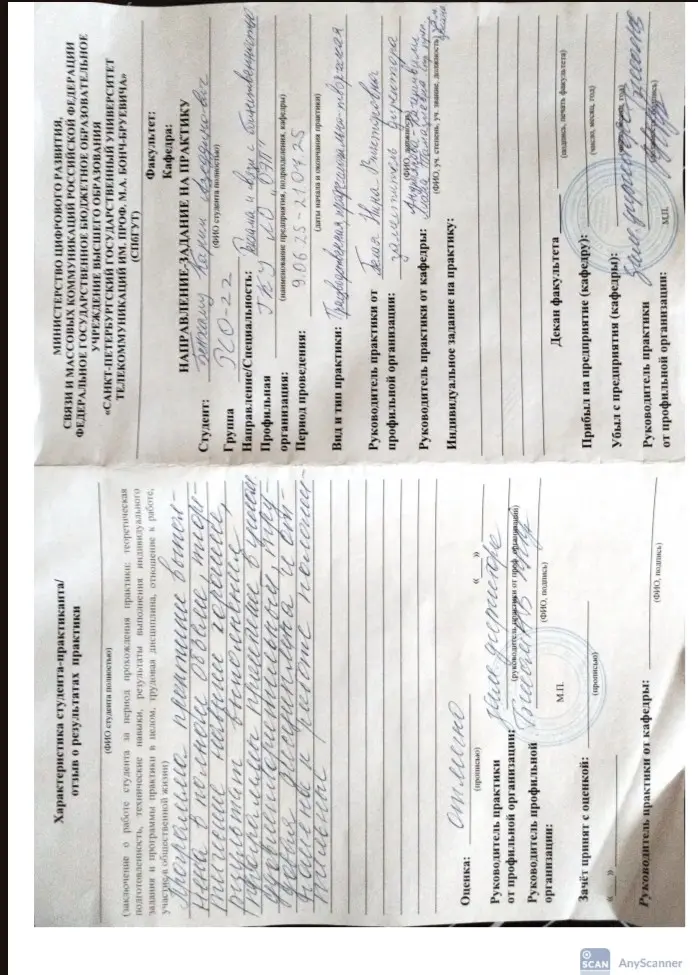 МИНИСТЕРСТВО ЦИФРОВОГО РАЗВИТИЯ,
СВЯЗИ И МАССОВЫХ КОММУНИКАЦИЙ РОССИЙСКОЙ ФЕДЕРАЦИИ
ФЕДЕРАЛЬНОЕ ГОСУДАРСТВЕННОЕ БЮДЖЕТНОЕ ОБРАЗОВАТЕЛЬНОЕ
УЧРЕЖДЕНИЕ ВЫСШЕГО ОБРАЗОВАНИЯ
«САНКТ-ПЕТЕРБУРГСКИЙ ГОСУДАРСТВЕННЫЙ УНИВЕРСИТЕТ
ТЕЛЕКОММУНИКАЦИЙ ИМ. ПРОФ. М.А. БОНЧ-БРУЕВИЧА»
(СПбГУТ)
Факультет:
Кафедра:
НАПРАВЛЕНИЕ-ЗАДАНИЕ НА ПРАКТИКУ
Студент:
(ФИО студента полностью)
Группа РСО-22
Направление/Специальность: Реклама и связи с общественностью
Профильная
организации: ГКУ ЛО
(наименование предприятия, подразделения, кафедры)
Период проведения: 9.06.25-21.07.25
(даты начала и окончания практики)
Вид и тип практики: Производственная профессионально-творческая
Руководитель практики от
профильной организации: Нина Викторовна
заместитель директора
(ФИО, должность)
Руководитель практики от кафедры:
(ФИО, уч. степень, уч. звание, должность)
Индивидуальное задание на практику:
Декан факультета
(подпись, печать факультета)
Прибыл на предприятие (кафедру):
(число, месяц, год)
Убыл с предприятия (кафедры):
Руководитель практики
от профильной организации: Зам. директора
М.П.
Характеристика студента-практиканта/
отзыв о результатах практики
(ФИО студента полностью)
(заключение о работе студента за период прохождения практики: теоретическая
подготовленность, технические навыки, результаты выполнения индивидуального
задания и программы практики в целом, трудовая дисциплина, отношение к работе,
участие в общественной жизни)
Программа практики выпол-
нена в полном объеме, теоре-
тические навыки хорошие,
результат выполнения
программы практики в целом
удовлетворительный, тру-
довая дисциплина и от-
ношение к работе положи-
тельные
Оценка: отлично
(прописью)
« »
Руководитель практики
от профильной организации: зам. директора
(руководитель практики от проф. организации)
Руководитель профильной
организации:
(ФИО, подпись)
М.П.
Зачёт принят с оценкой:
(прописью)
« »
Руководитель практики от кафедры:
(ФИО, подпись)
SCAN
AnyScanner